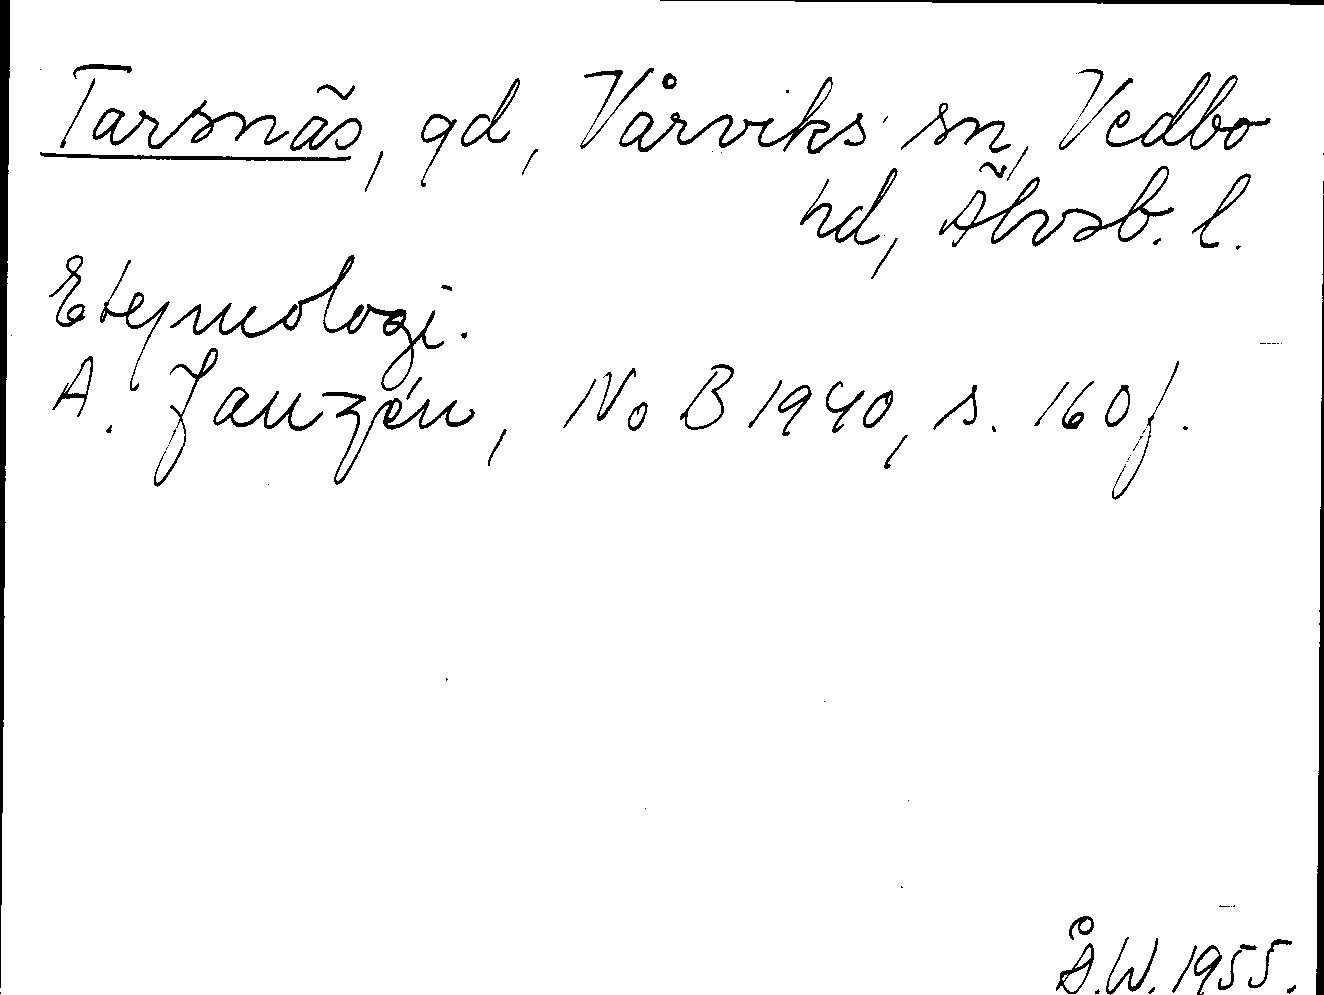 Tarsnäs, gd, Vårviks sn, Vedbo
hd, Älvsb. l.
Etymologi.
A. Janzén, NoB 1940, s. 160 f.
Å.W. 1955.